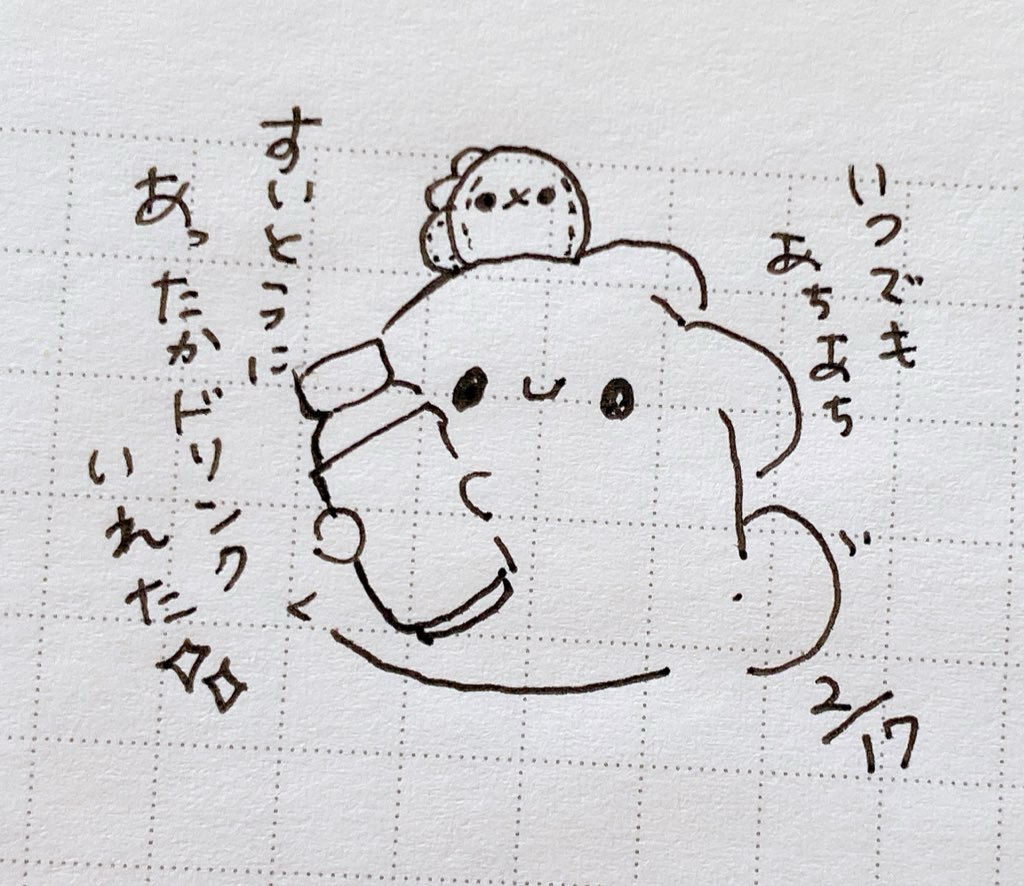 いつでも
あちあち
すいとうに
あったかドリンク
いれた
2/17